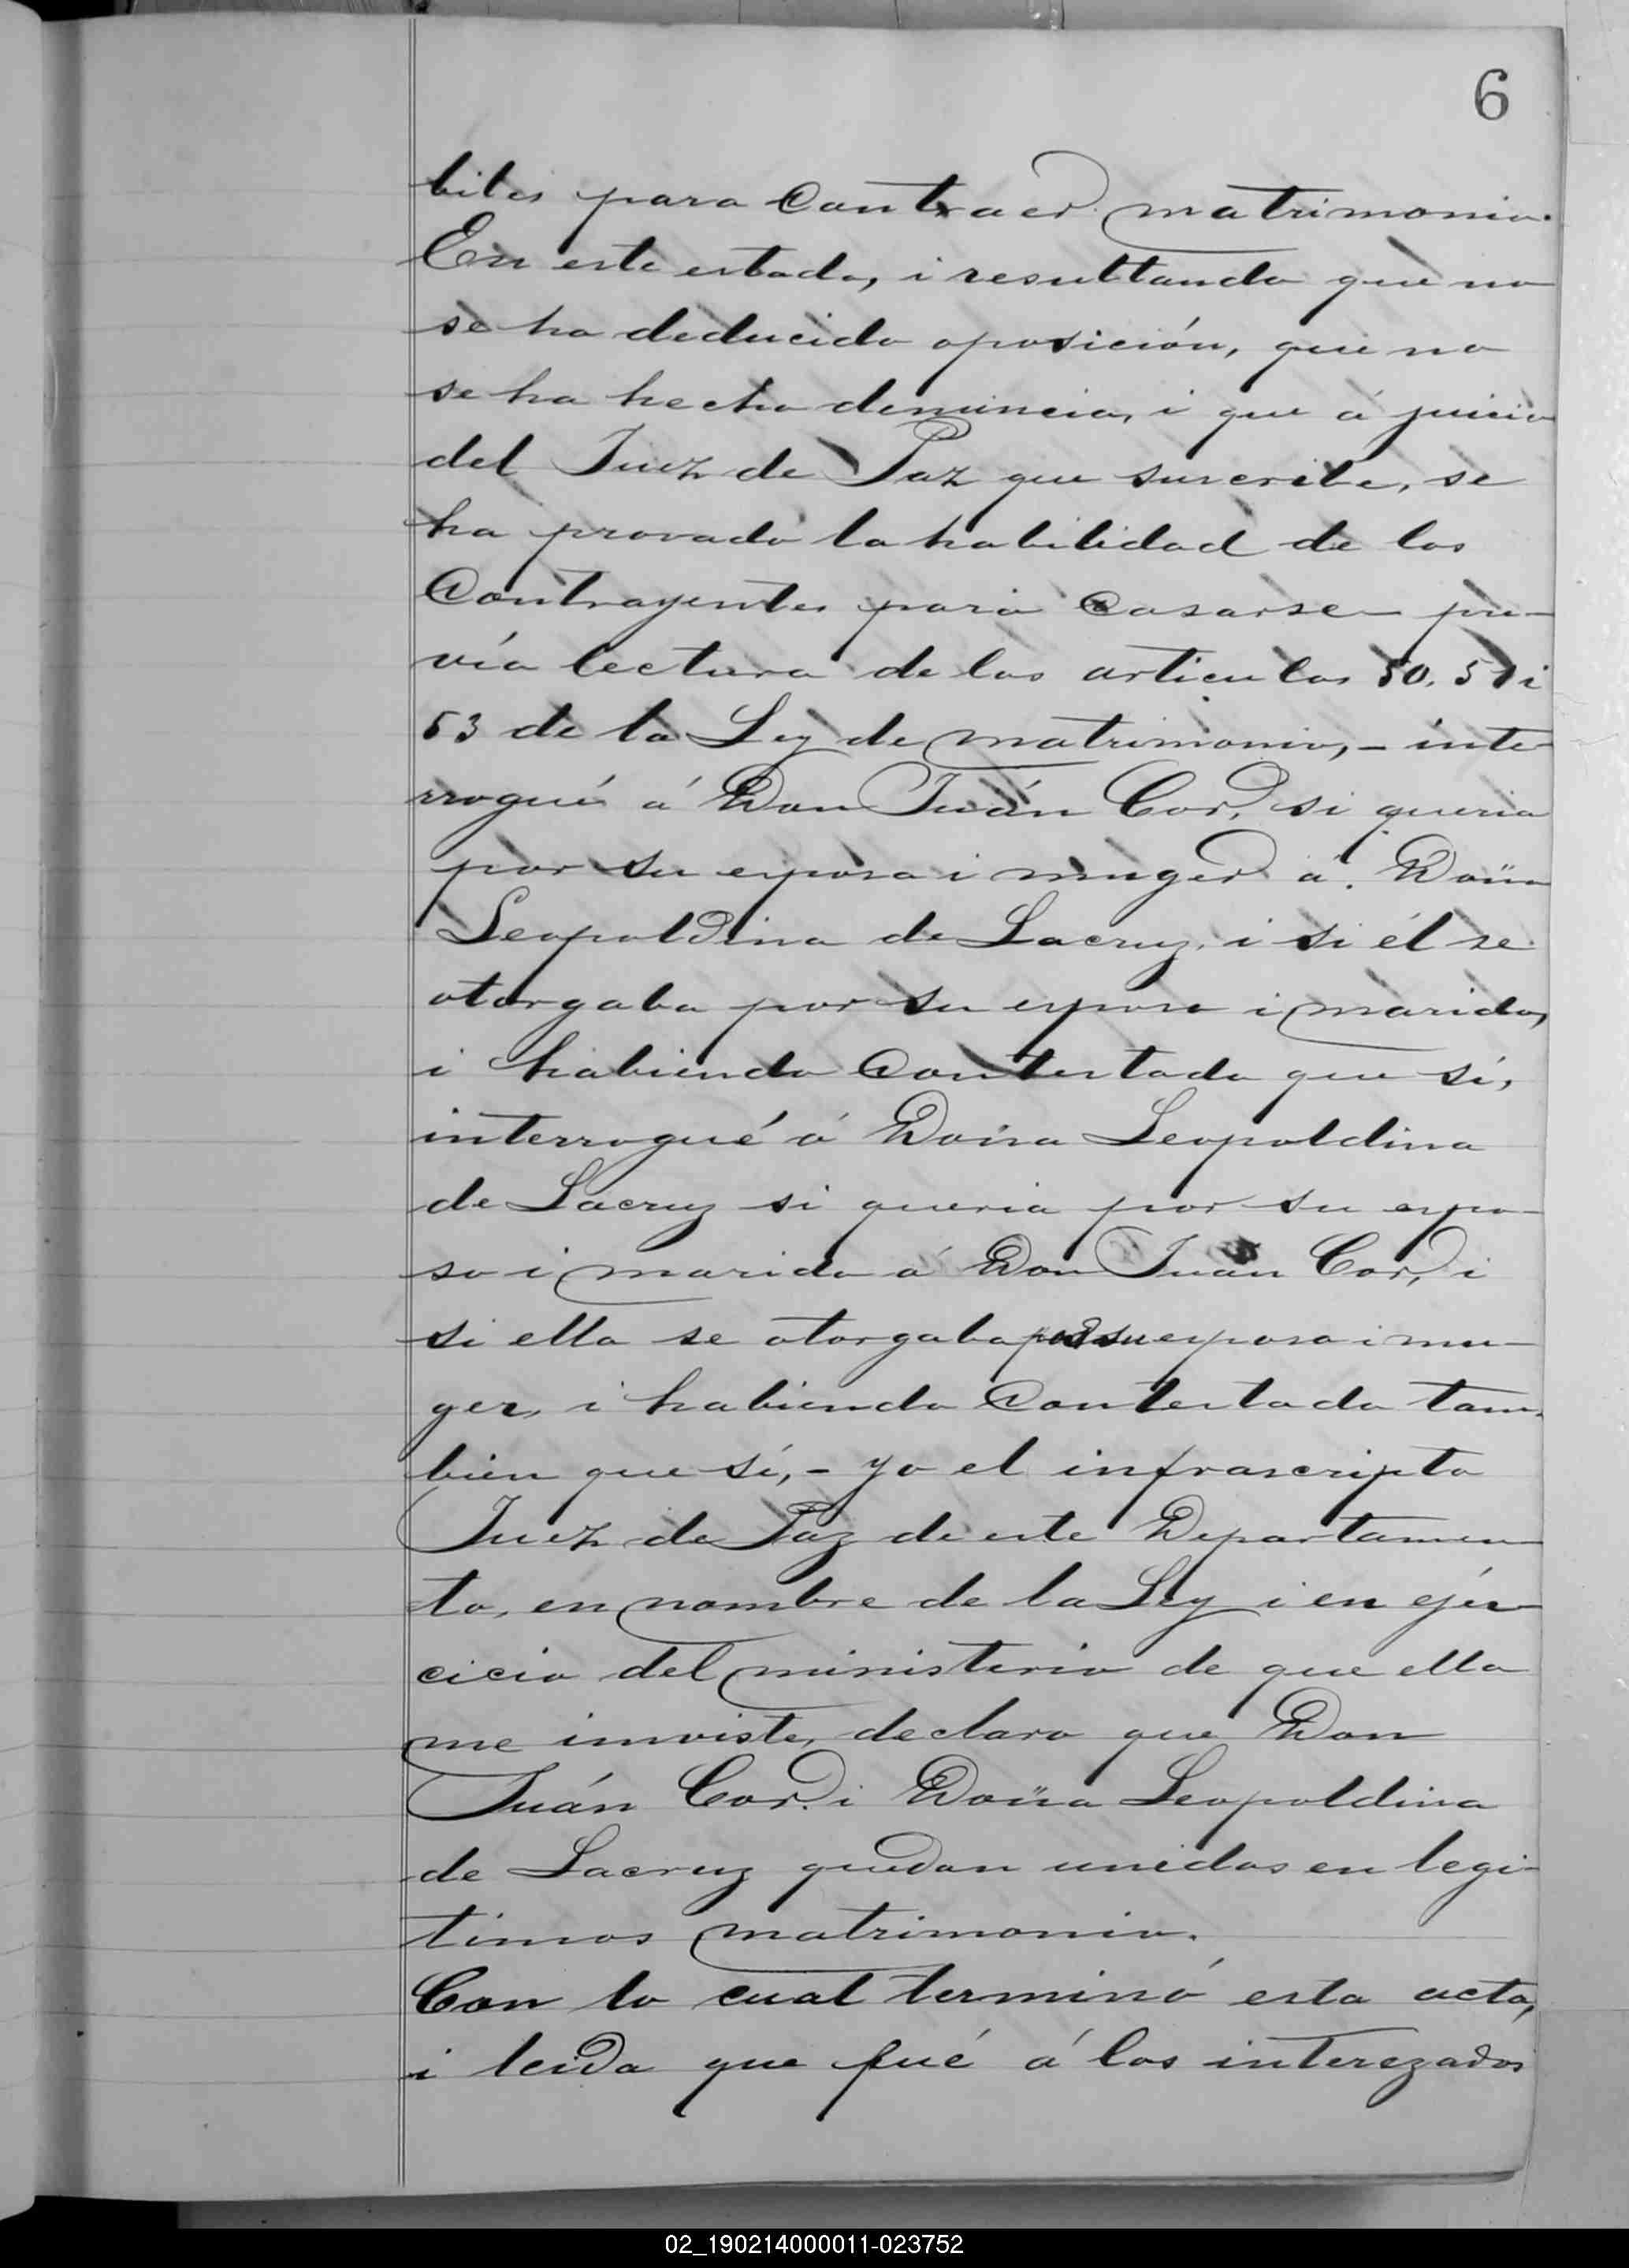 6
biles para contraer matrimonio.
En este estado, i resultando que no
se ha deducido oposición, que no
se ha hecho denuncia, i que á juicio
del Juez de Paz que suscribe, se
ha provado la habilidad de los
contrayentes para casarse pre-
vía lectura de los articulos 50, 51 i
53 de la Ley de matrimonio, - inte-
rrogué á Don Juán Cor, si queria
por su esposa i muger á Doña
Leopoldina de Lacruz, i si él se
otorgaba por su esposo i marido,
i habiendo contestado que sí,
interrogué á Doña Leopoldina
de Lacruz si queria por su espo-
so i marido á Don Juan Cor, i
si ella se otorgaba por su esposa i mu-
ger, i habiendo contestado tam-
bien que sí, - yo el infrascripto
Juez de Paz de este Departamen-
to, en nombre de la Ley i en ejér-
cicio del ministerio de que ella
me inviste, declaro que Don
Juán Cor i Doña Leopoldina
de Lacruz quedan unidos en legi-
timos matrimonio.
Con lo cual terminó esta acta,
i leida que fué á los interezados
02_190214000011-023752